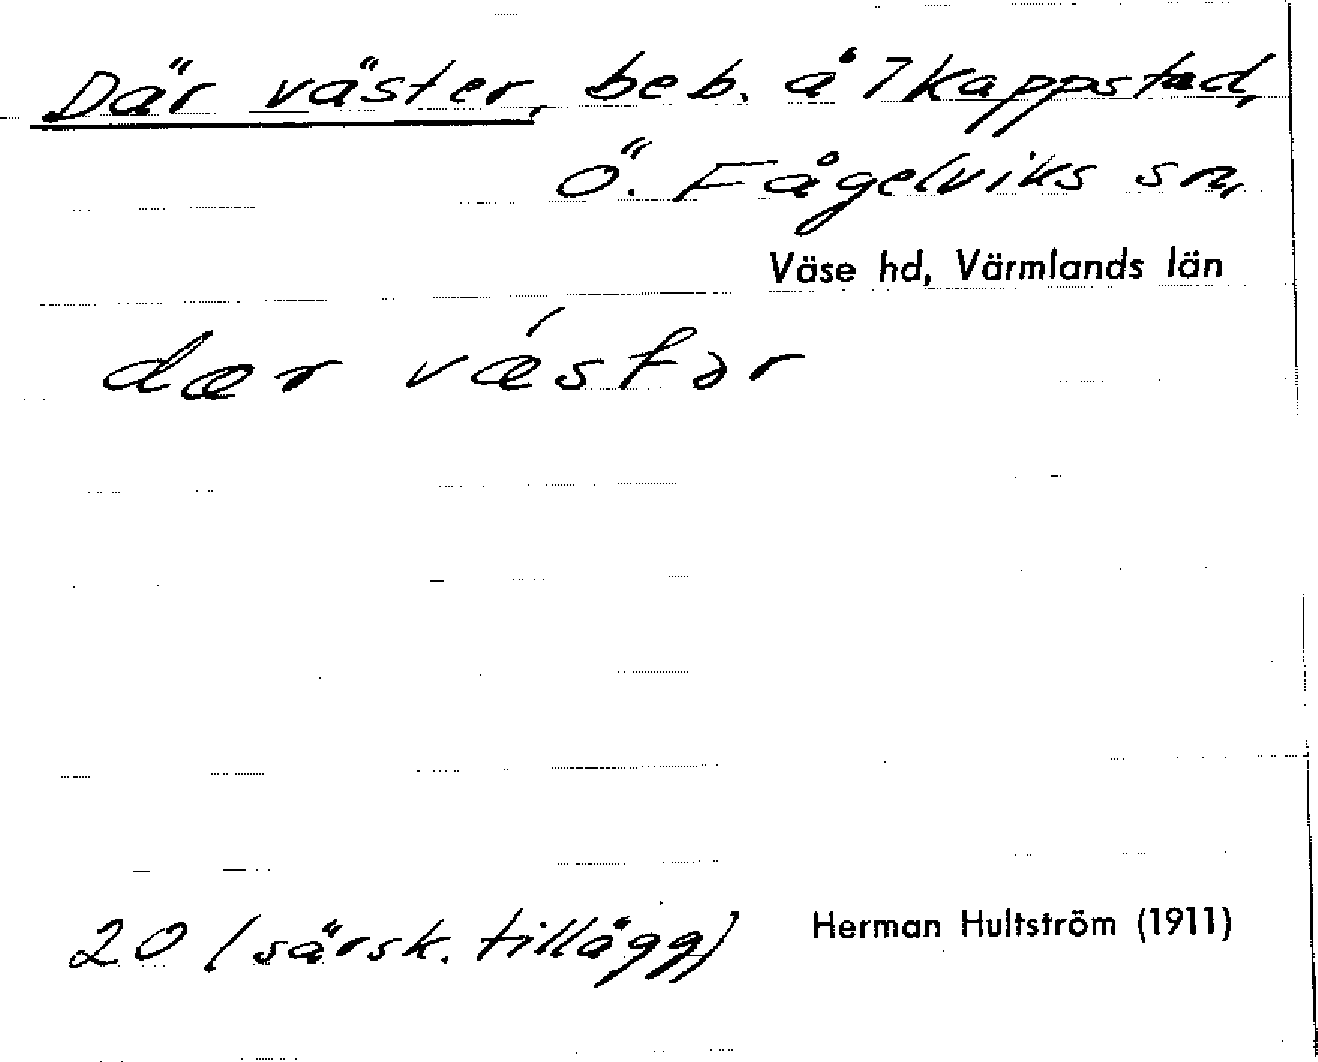 Där väster, beb. å 7 Kappstad,
Ö. Fågelviks sn,
Väse hd, Värmlands län
dær vǽstər
20 (särsk. tillägg) Herman Hultström (1911)